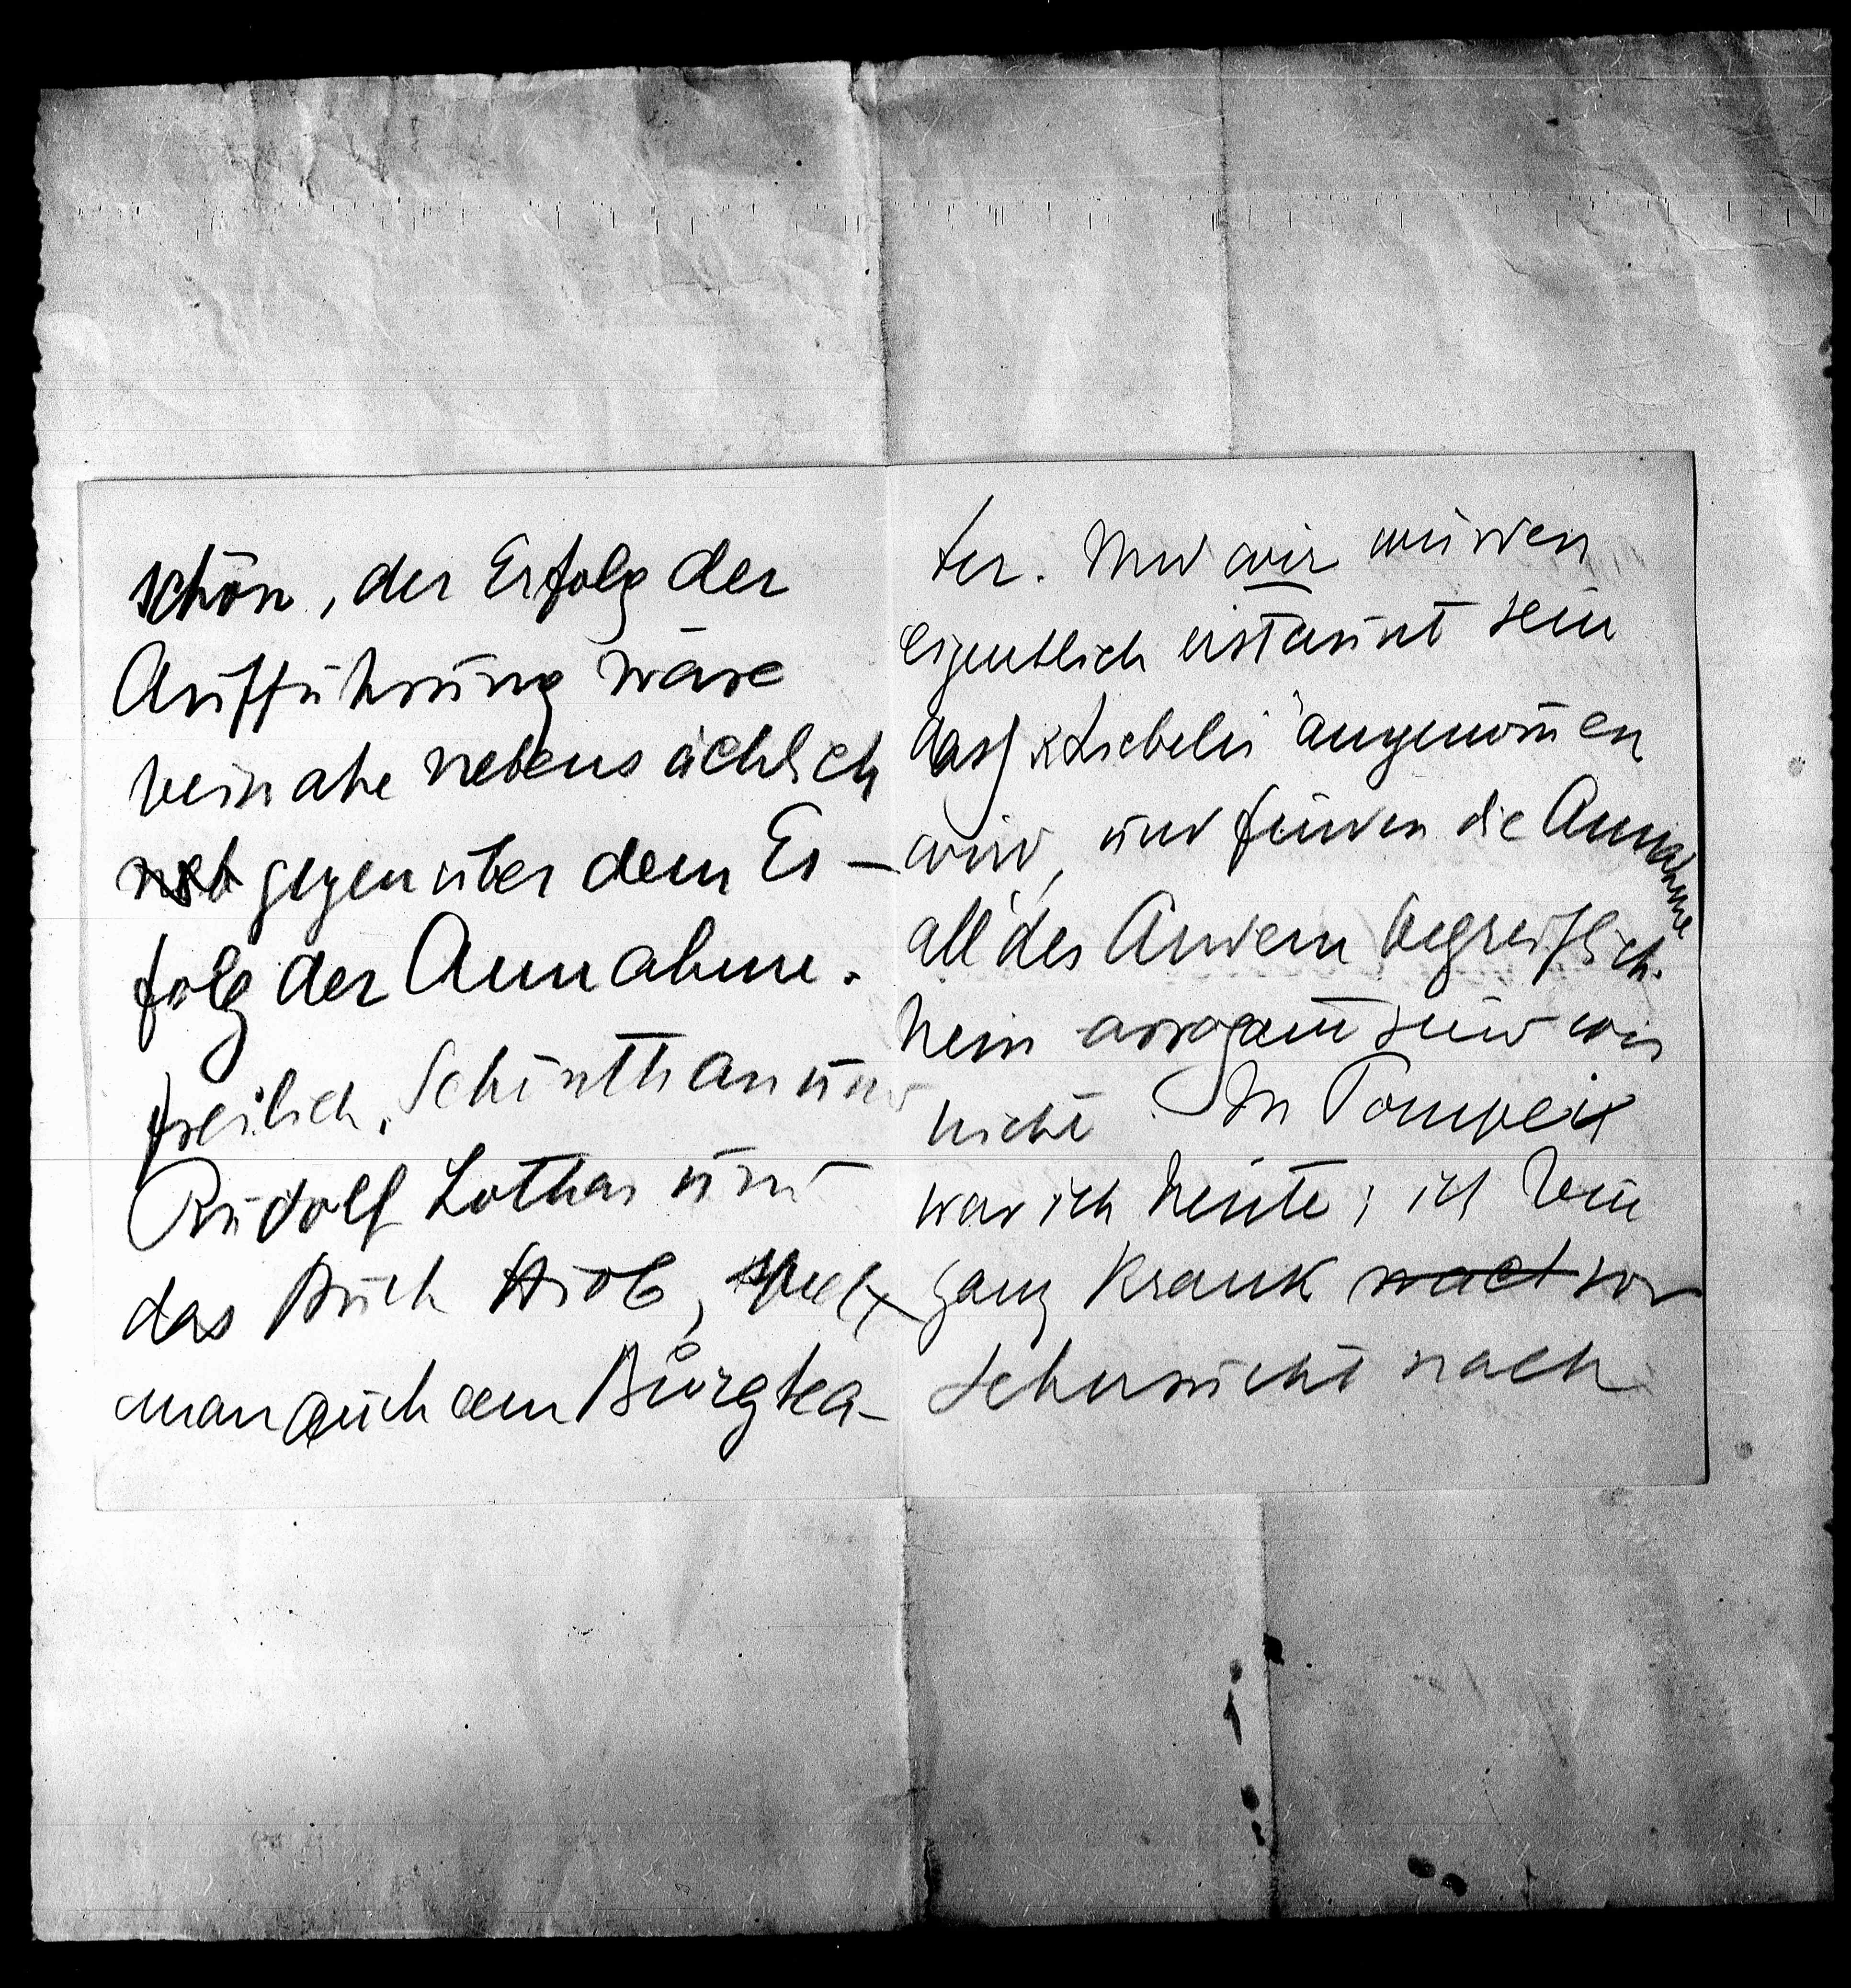 schön, der Erfolg der
Aufführung wäre
beinahe nebensächlich
neb gegenüber dem Er-
folg der Annahme.
freilich, Schönthan und
Rudolf Lothar und
das Buch Hiob, spielt
man auch am Burgthea-
ter. Und wir würden
eigentlich erstaunt sein
dass „Liebelei" angenom̅en
wird, und finden die Annahme
all' des Andern begreiflich.
Nein arrogant sind wir
nicht. In Pompei
war ich heute; ich bin
ganz krank nach vor
Sehnsucht nach